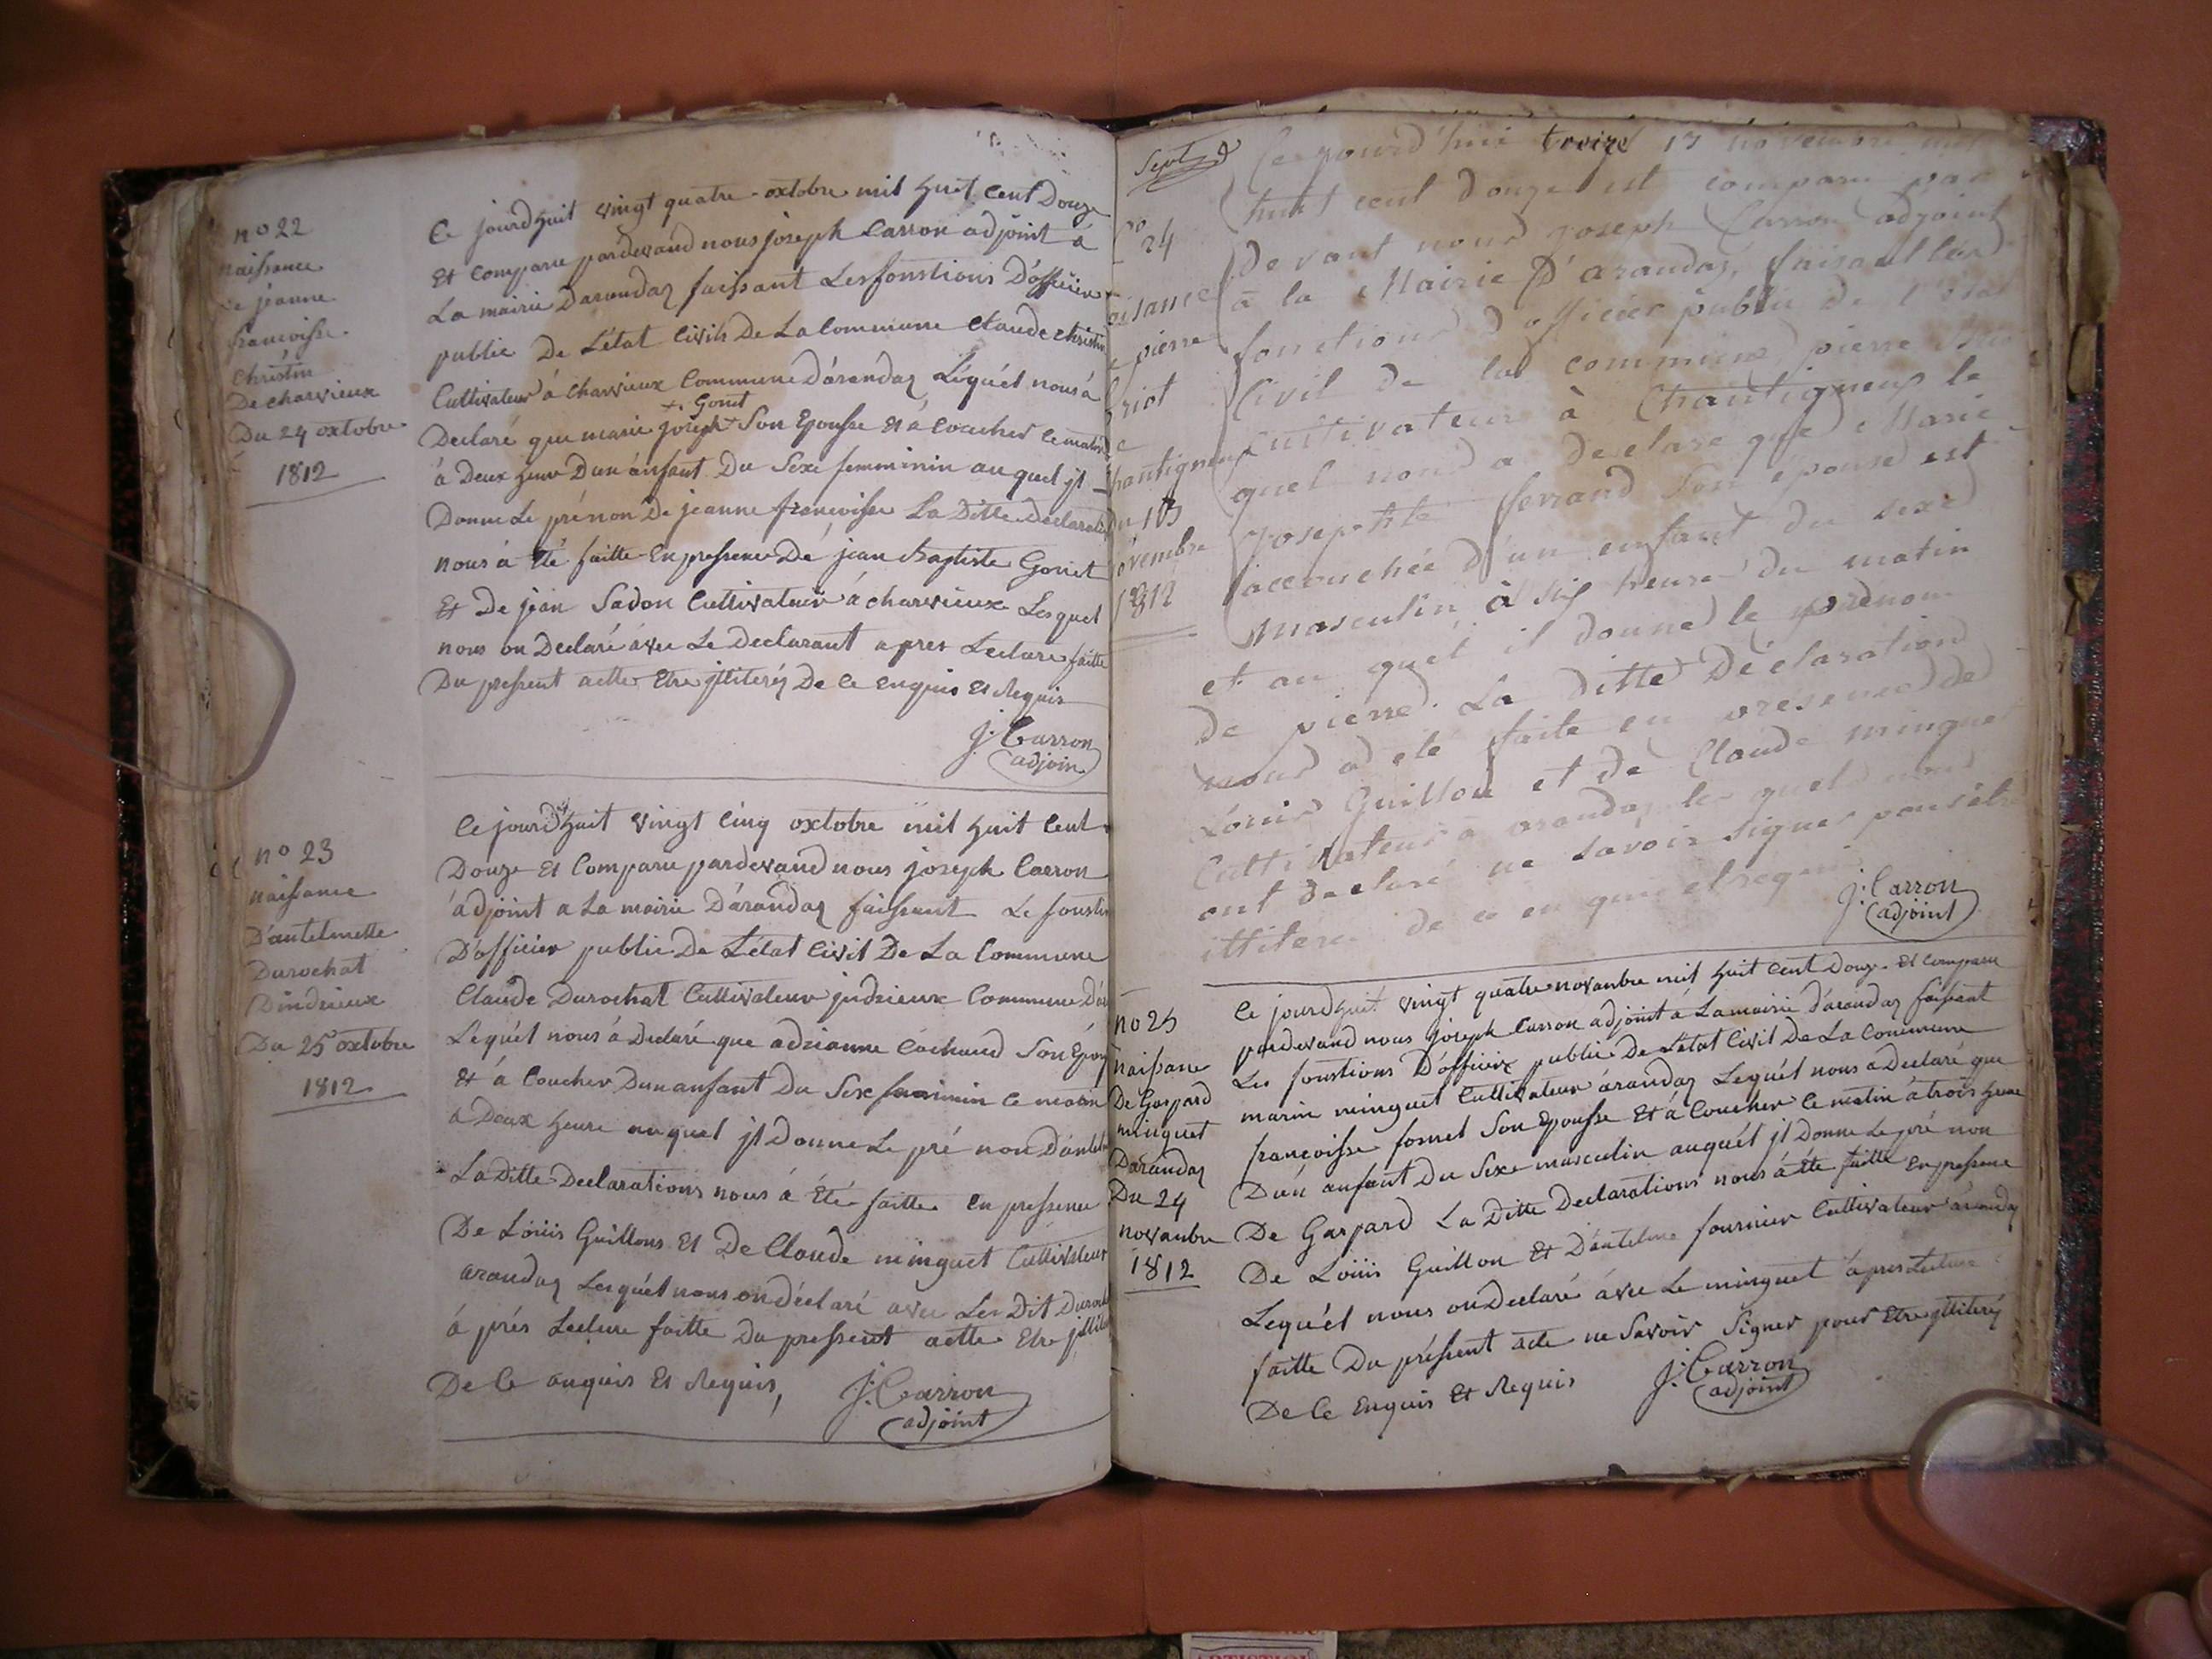 n° 22
naissance
de jeanne
francoisse
Christin
De charvieux
Du 24 oxtobre
1812
Ce jourdhuit vingt quatre oxtobre mil huit Cent Douze
Et Comparu pardevand nous joseph Carron adjoint á
La mairie Darandaz faissant Les fonstions D'officier
public De L'état Civils De La Commune Claude Christin
Cultivateur á Charvieux Commune D'árandaz Léquél nous á
+. Gonet
Declaré que marie joseph + Son Epousse Et á Coucher Ce matin
á Deux heur Dun ánfant Du Sexe femminin au quel jl
Donne Le prénon De jeanne francoisse La Ditte Declaration
nous á Eté faitte En pressence Dé jean Baptiste Gonet
Et De jean Sadon Cultivateur á charvieux Lesquel
nous on Declaré ávec Le Declarant apres Lecture faitte
Du pressent actte Etre jlliteréz De Ce enquis Et Requis
J: Carron
adjoin
n° 23
naissance
D'antelmette
Durochat
Dindrieux
Du 25 oxtobre
1812
Ce jourdhuit vingt Cinq oxtobre mil huit Cent
Douze Et Comparu pardevand nous joseph Carron
ádjoint a La mairie Dárandaz faissant Le fonstion
D'officier public De L'état Civil De La Commune
Claude Durochat Cultivateur jndrieux Commune Dár
Léquél nous á Declaré que adrianne Cochaud Son Epous
Et á Coucher Dun anfant Du Sex feminin Ce matin
a Deux heure auquel jl Donne Le pré non Dantel
La Ditte Declarations nous á Eté faitte en pressence
De Loüis Guillons Et De Claude minguet Cultivateur
arandaz Lesquél nous on déclaré avec Les Dit Duroch
á prés Lecture faitte Du pressent actte Etre jllite
De Ce anquis Et Requis,
J: Carron
adjoint
Sept d
n° 24
aisance
e pierre
Briot
e
hantigneux
Du 13
ovembre
1812
Ce ajourd'huit treize 13 novembre mil
huit cent douze est comparu par
devant nous joseph Carron adjoint
à la Mairie D'arandaz, faisant les
fonctions d'officier public de l'état
Civil de la commune, pierre
cultivateur à Chantigneux le
quel nous a declare que Marie
Josephte ferrand Son épouse est
accouchée d'un enfant du sexe
masculin, à six heure du matin
et au quel il donne le prenom
de pierre. La ditte Déclaration
nous a eté faite en présence de
Louis Guillon et de Claude minguet
Cultivateur à arandaz les quel nous
ont declaré ne savoir Signer pour être
illitere de ce en quis et requis
J: Carron
adjoint
n° 25
naissance
De Gaspard
minguet
Darandaz
Du 24
novanbre
1812
Ce jourdhuit vingt quatre novanbre mil huit Cent Douz. Et Comparu
pardevand nous joseph Carron adjoint á La mairie dárandaz faissant
Les fonstions D'officier public De L'état Civil De La Commune
marin minguet Cultivateur árandaz Lequél nous a Declaré que
francoisse fornet Son Epousse Et á Coucher Ce matin á trois heure
D'ún anfant Du Sexe masculin auquél jl Donne Le pré non
De Gaspard La Ditte Declarations nous á Eté faitte En pressence
De Loüis Guillon Et D'antelme fournier Cultivateur árandaz
Lequél nous on Declaré ávec Le minguet ápres Lecture
faitte Du préssent acte ne Savoir Signer pour Etre jlliteréz
De Ce Enquis Et Requis
J: Carron
adjoint